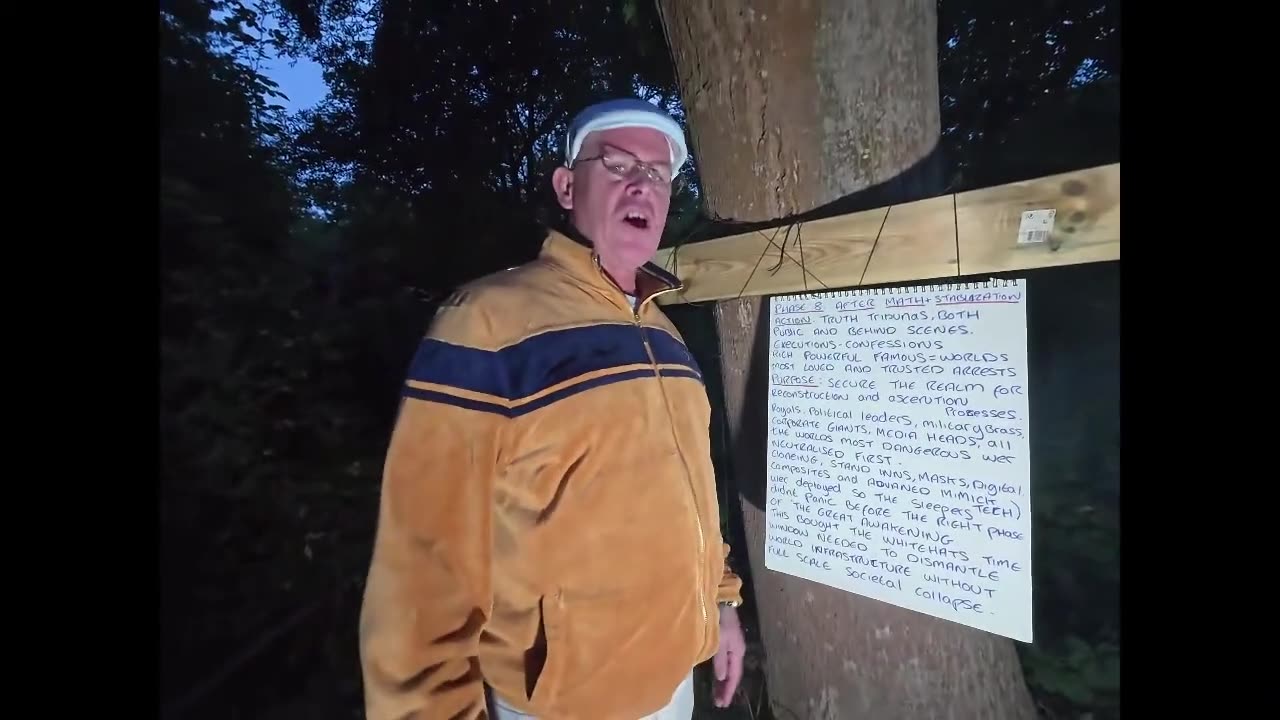 PHASE 8 AFTER MATH + STABLIZATION
ACTION: TRUTH TribuNaS, BOTH
PUBIC AND BEHIND SCENES.
EXECUTIONS - CONFESSIONS
RICH POWERFUL FAMOUS = WORLDS
MOST LOVED AND TRUSTED ARRESTS
PURPOSE: SECURE THE REALM FOR
RECONSTRUCTION and ASCENTION
PROZESSES.
Royals, Political leaders, military Brass,
CORPORATE GIANTS, MEDIA HEADS, all
THE WORLDS MOST DANGEROUS WER
NEUTRALISED FIRST.
CLONEING, STAND INNS, MASKS, Digital
COMPOSITES and ADVANED MIMICK
TECH)
wer deployed so THE Sleepers
didnt PANIC BEFORE THE RIGHT PHASE
OF THE GREAT AWAKENING
THIS BOUGHT THE WHITEHATS TIME
WINDOW NEEDED TO DISMANTLE
WORLD INFRASTRUETURE WITHOUT
FULL SCALE SOCIETAL COLLAPSE.